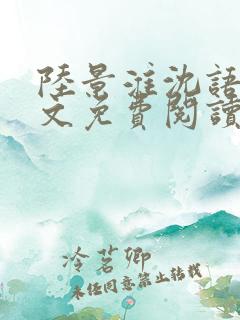 陸景淮沈語
文免費閱讀
冷茗卿
未经同意禁止转载